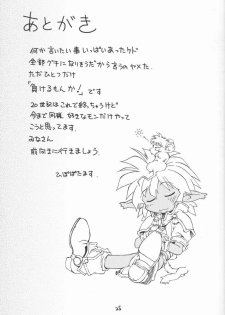 あとがき
何か言いたい事いっぱいあったケド
全部グチになりそうだから言うのヤメた。
ただひとつだけ
「負けるもんか!」です
20世紀はこれで終っちゃうけど
今まで同様、好きなモンだけやって
こうと思ってます。
みなさん
前向きに行きましょう。
ひぱぱたます。